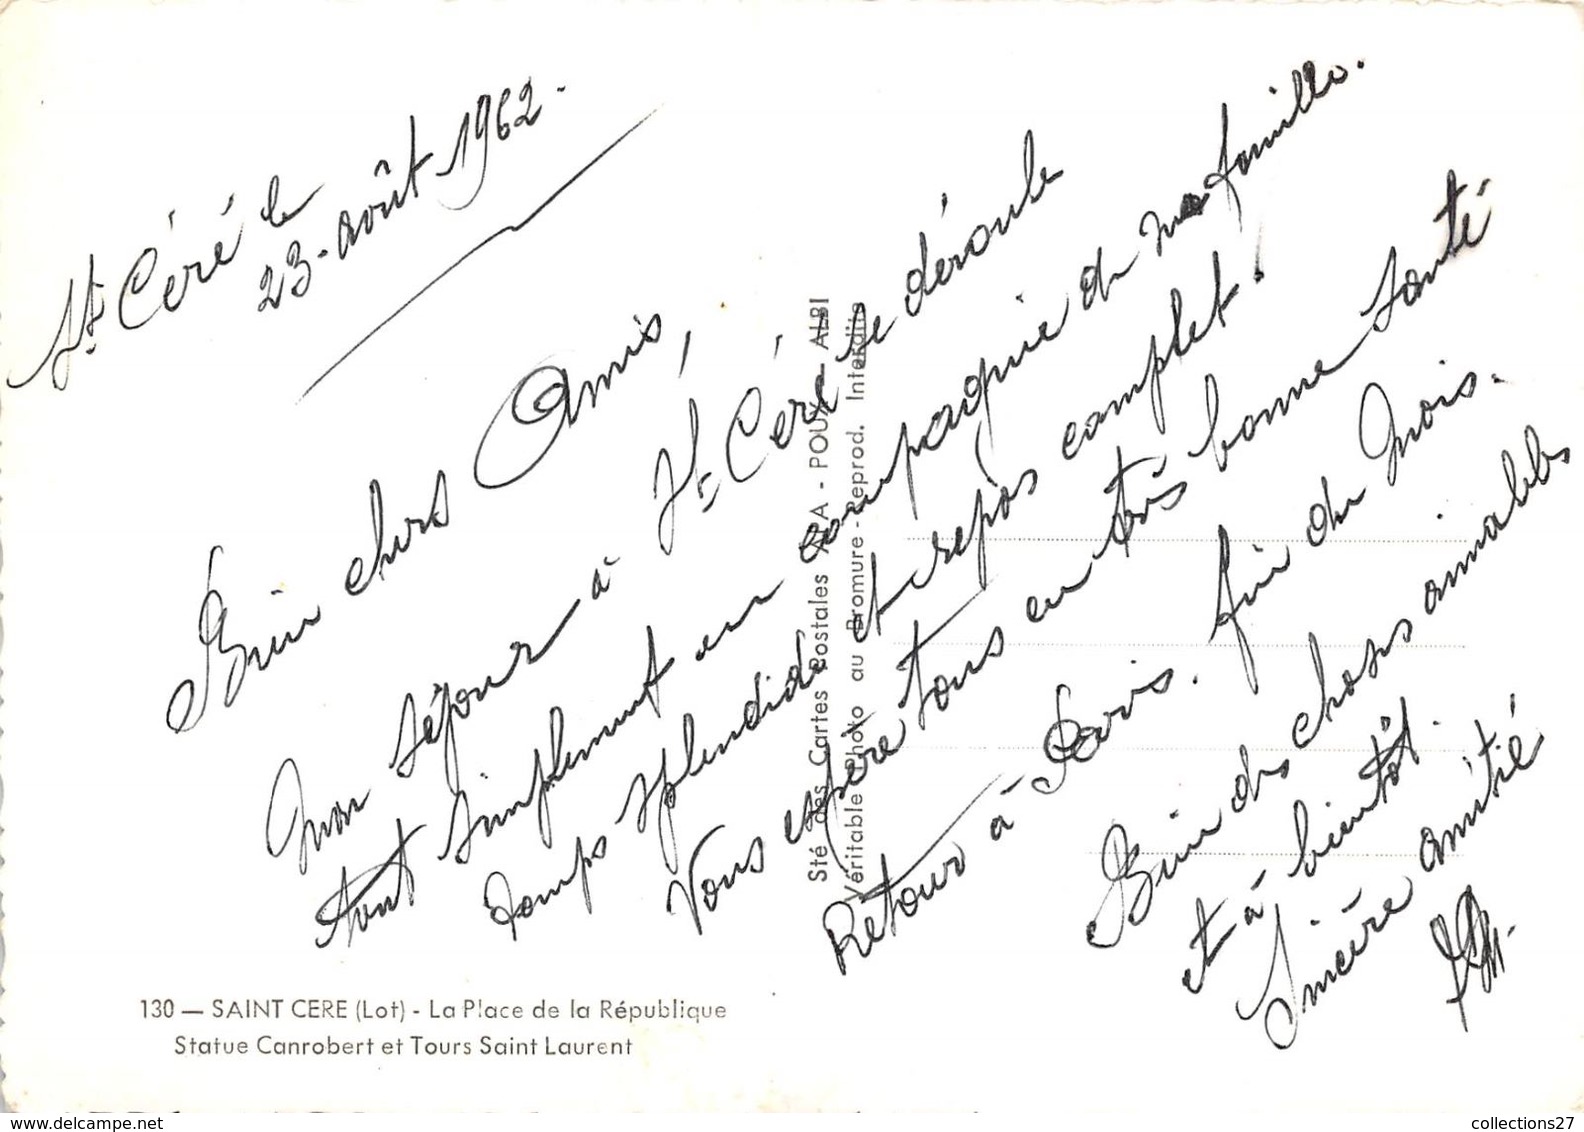 St Céré le
23 - août 1962.
Bien chers Amis,
Mon séjour à St Céré se déroule
tout simplement en compagnie de ma famille.
Temps splendide et repos complet.
Vous espère tous en très bonne santé
Retour à Paris. fin du Mois.
Bien des choses aimables
et à bientôt.
Sincère amitié
130 — SAINT CERE (Lot) - La Place de la République
Statue Canrobert et Tours Saint Laurent
Sté des Cartes Postales - POUX - ALBI
Véritable Photo au Bromure - Reprod. Interdite
delcampe.net
collections27